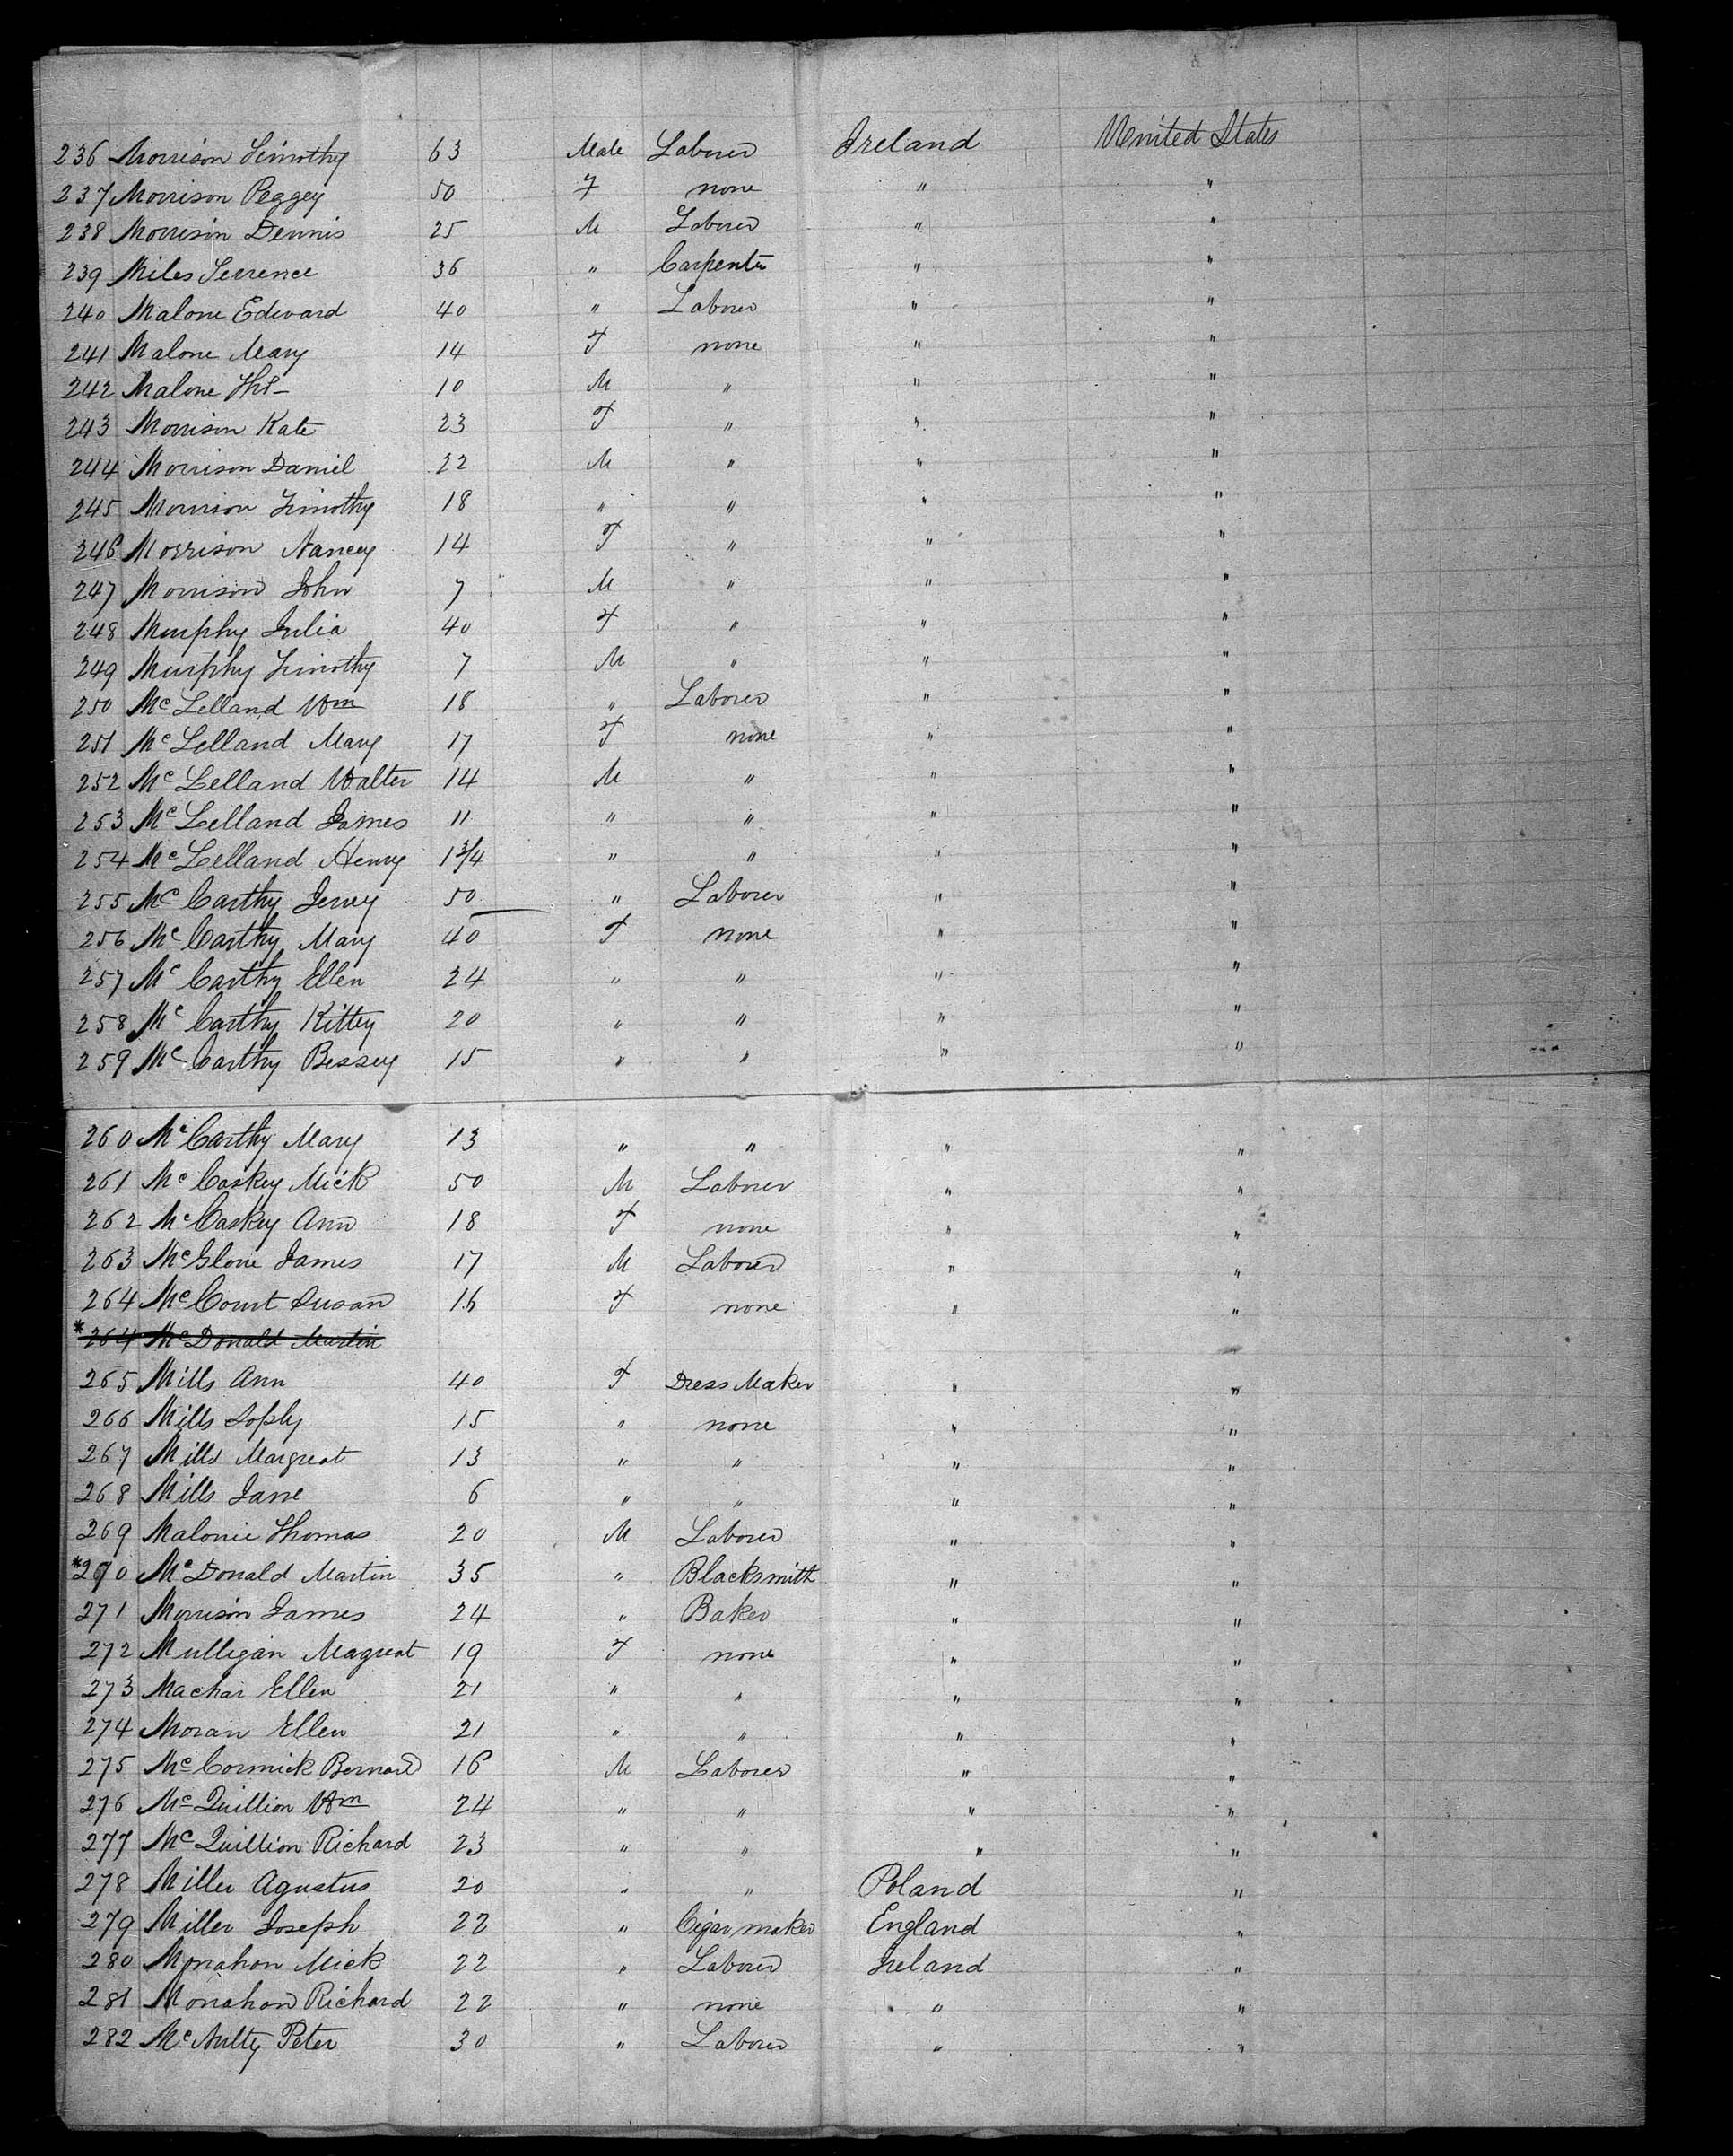 236 Morrison Timothy 63 Male Laborer Ireland United States
237 Morrison Peggey 50 F none " "
238 Morrison Dennis 25 M Laborer " "
239 Miles Terrence 36 " Carpenter " "
240 Malone Edward 40 " Laborer " "
241 Malone Mary 14 F none " "
242 Malone 10 M " " "
243 Morrison Kate 23 F " " "
244 Morrison Daniel 22 M " " "
245 Morrison Timothy 18 " " " "
246 Morrison Nancey 14 F " " "
247 Morrison John 7 M " " "
248 Murphy Julia 40 F " " "
249 Murphy Timothy 7 M " " "
250 Mc Lelland Wm 18 " Laborer " "
251 Mc Lelland Mary 17 F none " "
252 Mc Lelland Walter 14 M " " "
253 Mc Lelland James 11 " " " "
254 Mc Lelland Henry 1 3/4 " " " "
255 Mc Carthy Jerrey 50 " Laborer " "
256 Mc Carthy Mary 40 F none " "
257 Mc Carthy Ellen 24 " " " "
258 Mc Carthy Kittey 20 " " " "
259 Mc Carthy Bessey 15 " " " "
260 Mc Carthy Mary 13 " " " "
261 Mc Caskey Mick 50 M Laborer " "
262 Mc Caskey Ann 18 F none " "
263 McGlone James 17 M Laborer " "
264 Mc Court Susan 16 F none " "
* 264 Mc Donald Martin
265 Mills Ann 40 F Dress Maker " "
266 Mills Sophy 15 " none " "
267 Mills Margreat 13 " " " "
268 Mills Jane 6 " " " "
269 Malonie Thomas 20 M Laborer " "
* 270 Mc Donald Martin 35 " Blacksmith " "
271 Morrison James 24 " Baker " "
272 Mulligan Magreat 19 F none " "
273 Machar Ellen 21 " " " "
274 Moran Ellen 21 " " " "
275 Mc Cormick Bernard 16 M Laborer " "
276 Mc Quillion Wm 24 " " " "
277 Mc Quillion Richard 23 " " " "
278 Miller Agustus 20 " " Poland "
279 Miller Joseph 22 " Cigar maker England "
280 Monahon Mick 22 " Laborer Ireland "
281 Monahon Richard 22 " none " "
282 Mc Nulty Peter 30 " Laborer " "